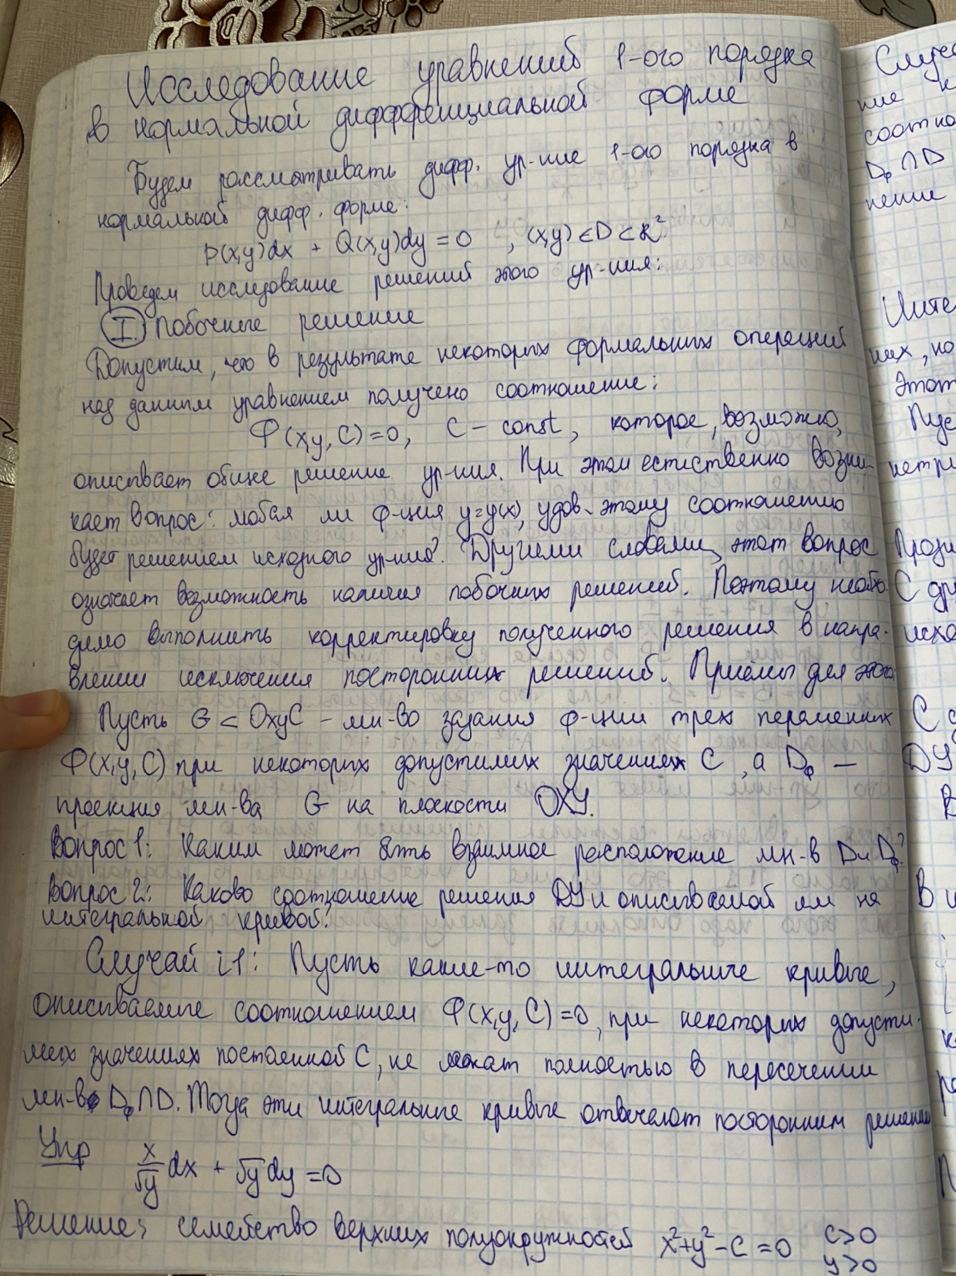 Исследование уравнений 1-ого порядка
в нормальной дифференциальной форме
Будем рассматривать дифф. ур-ние 1-ого порядка в
нормальной дифф. форме:
P(x,y)dx + Q(x,y)dy = 0 , (x,y) ⊂ D ⊂ R²
Проведем исследование решений этого ур-ния:
I. Побочные решение
Допустим, что в результате некоторых формальных операций
над данным уравнением получено соотношение:
Ф(x,y,C)=0, C – const, которое, возможно,
описывает общее решение ур-ния. При этом естиственно возни-
кает вопрос: любая ли ф-ция y=y(x), удов. этому соотношению
будет решением исходного ур-ния? Другими словами, этот вопрос
означает возможность наличия побочных решений. Поэтому необхо-
димо выполнить корректировку полученного решения в напра-
влении исключения посторонних решений. Приёмы для этого
Пусть G ⊂ OxyC – мн-во задания ф-ции трех переменных
Ф(x,y,C) при некоторых допустимых значениях C, а Dф –
проекция мн-ва G на плоскости OXY.
Вопрос 1: Каким может быть взаимное расположение мн-в D и Dф?
Вопрос 2: Каково соотношение решения ДУ и описываемой им на
интегральной кривой?
Случай i1: Пусть какие-то интегральные кривые,
описываемые соотношением Ф(x,y,C)=0, при некоторых допусти-
мых значениях постоянной C, не лежат полностью в пересечении
мн-в Dф∩D. Тогда эти интегральные кривые отвечают посторонним решениям
Упр x/√y dx + √y dy = 0
Решение: семейство верхних полуокружностей x²+y²-C=0 C>0
y>0
Случа
ние к
соотно
Dф∩D
нение
Инте
них, но
Этот
Пус
метри
С дру
исхо
ДУ
В и